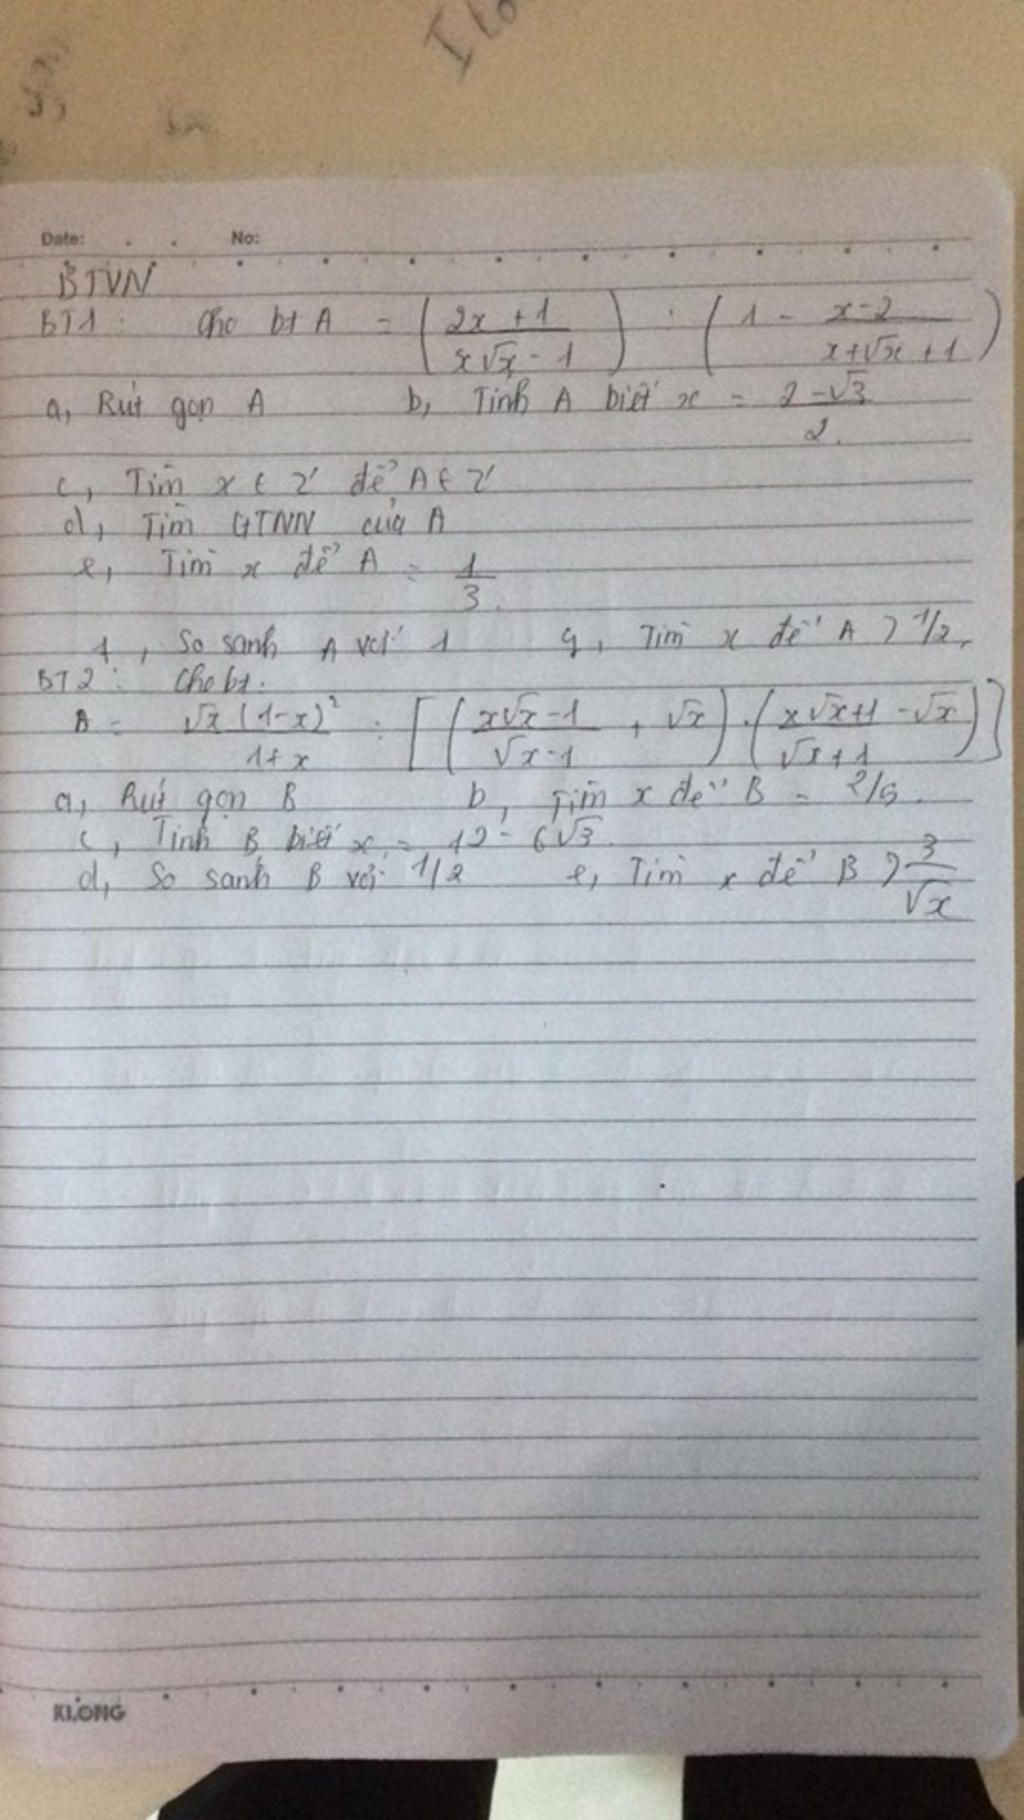 Date: No:
BTVN
BT1: Cho bt A = (2x + 1 / x√x - 1) : (1 - x-2 / x+√x+1)
a, Rút gọn A b, Tính A biết x = 2-√3 / 2.
c, Tìm x ∈ Z để A ∈ Z
d, Tìm GTNN của A
e, Tìm x để A = 1/3.
f, So sánh A với 1 g, Tìm x để A > 1/2.
BT2: Cho bt.
B = √x (1-x)² / 1+x : [(x√x-1 / √x-1 + √x) . (x√x+1 / √x+1 - √x)]
a, Rút gọn B b, Tìm x để B = 2/5.
c, Tính B biết x = 12 - 6√3.
d, So sánh B với 1/2 e, Tìm x để B > 3/√x
KLONG